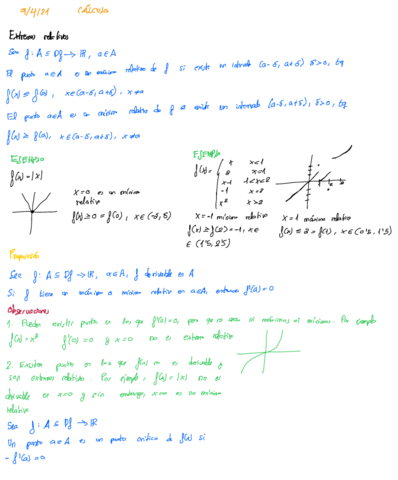 9/4/21 CÁLCULO
Extremos relativos
Sea f: A ⊆ Df → ℝ, a∈A
El punto a∈A es un máximo relativo de f si existe un intervalo (a-δ, a+δ) δ>0, tq
f(x) ≤ f(a), x∈(a-δ, a+δ), x≠a
El punto a∈A es un mínimo relativo de f si existe un intervalo (a-δ, a+δ), δ>0, tq
f(x) ≥ f(a), x∈(a-δ, a+δ), x≠a
EJEMPLO
f(x)=|x|
x=0 es un mínimo
relativo
f(x)≥0=f(0), x∈
EJEMPLO
f(x)=
x x<1
2 x=1
x-1 1<x<2
-1 x=2
x>2
x=-1 mínimo relativo
f(x)≥f(2)=-1, x∈
∈ (1'5, 2'5)
x=1 máximo relativo
f(x)≤2=f(1), x∈(0'5, 1'5)
Proposición
Sea f: A ⊆ Df → ℝ, a∈A, f derivable en A
Si f tiene un máximo o mínimo relativo en a∈A, entonces f'(a)=0
Observaciones
1. Pueden existir puntos en los que f'(x)=0, pero que no sean ni máximos ni mínimos. Por ejemplo
f(x)=x³ f'(0)=0 y x=0 no es extremo relativo
2. Existen puntos en los que f(x) no es derivable y
son extremos relativos. Por ejemplo, f(x)=|x| no es
derivable en x=0 y sin embargo, x=0 es un mínimo
relativo
Sea f: A ⊆ Df → ℝ
Un punto a∈A es un punto crítico de f(x) si
- f'(a)=0